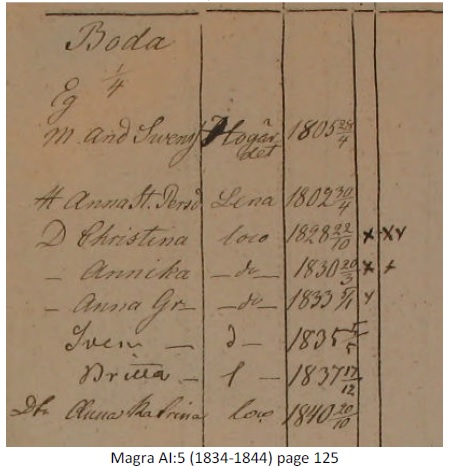 Boda
Eg 1/4
M. And Swenss Hogär 1805 28/4
det
H Anna St. Persd Lena 1802 30/4
D Christina loco 1828 22/10 x xx
– Annika – do – 1830 20/3 x x
– Anna Gr – – do – 1833 5/1
Sven – d – 1835 5/5
Britta – l – 1837 17/12
Dtr Anna Katrina loco 1840 20/10
Magra AI:5 (1834-1844) page 125